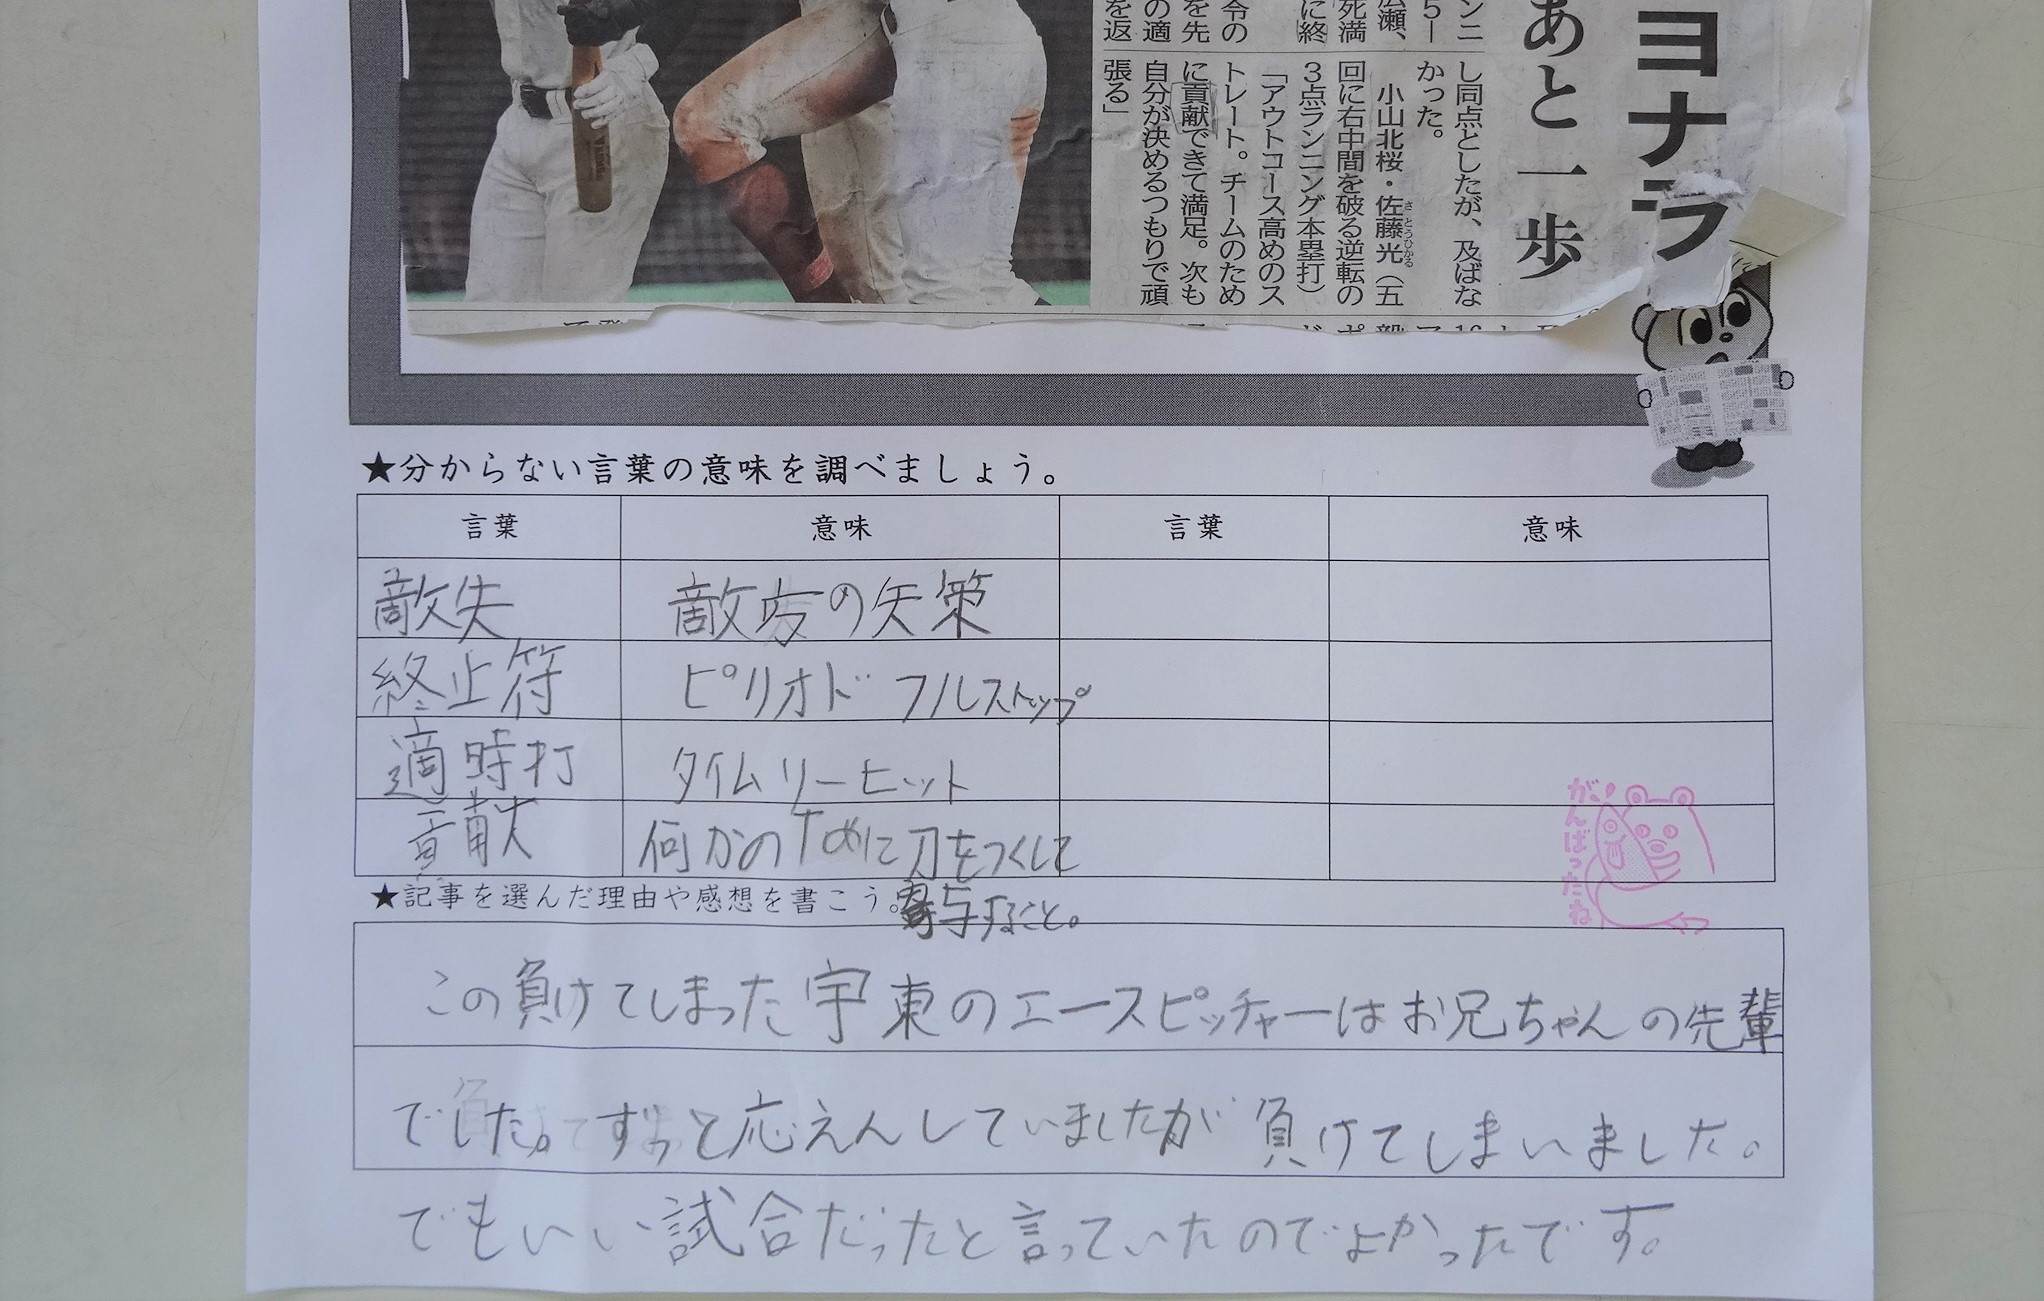 ヨナラ
あと一歩
ンニ
5ー
広瀬、
死満
に終
令の
を先
の適
を返
し同点としたが、及ばな
かった。
小山北桜・佐藤光（五
さとうひかる
回に右中間を破る逆転の
3点ランニング本塁打）
「アウトコース高めのス
トレート。チームのため
に貢献できて満足。次も
自分が決めるつもりで頑
張る」
★分からない言葉の意味を調べましょう。
言葉 意味 言葉 意味
敵失 敵方の失策
終止符 ピリオド フルストップ
適時打 タイムリーヒット
貢献 何かのために力をつくして
寄与すること。
がんばったね
★記事を選んだ理由や感想を書こう。
この負けてしまった宇東のエースピッチャーはお兄ちゃんの先輩
でした。ずっと応えんしていましたが負けてしまいました。
でもいい試合だったと言っていたのでよかったです。